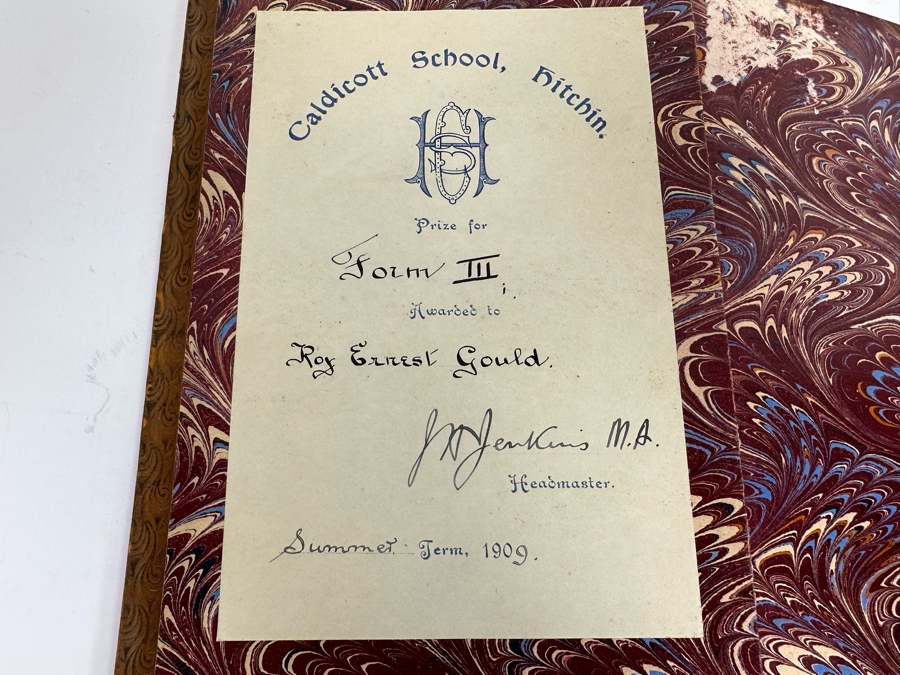 Caldicott School, Hitchin.
Prize for
Form III
Awarded to
Roy Ernest Gould.
J H Jenkins M.A.
Headmaster.
Summer Term, 1909.